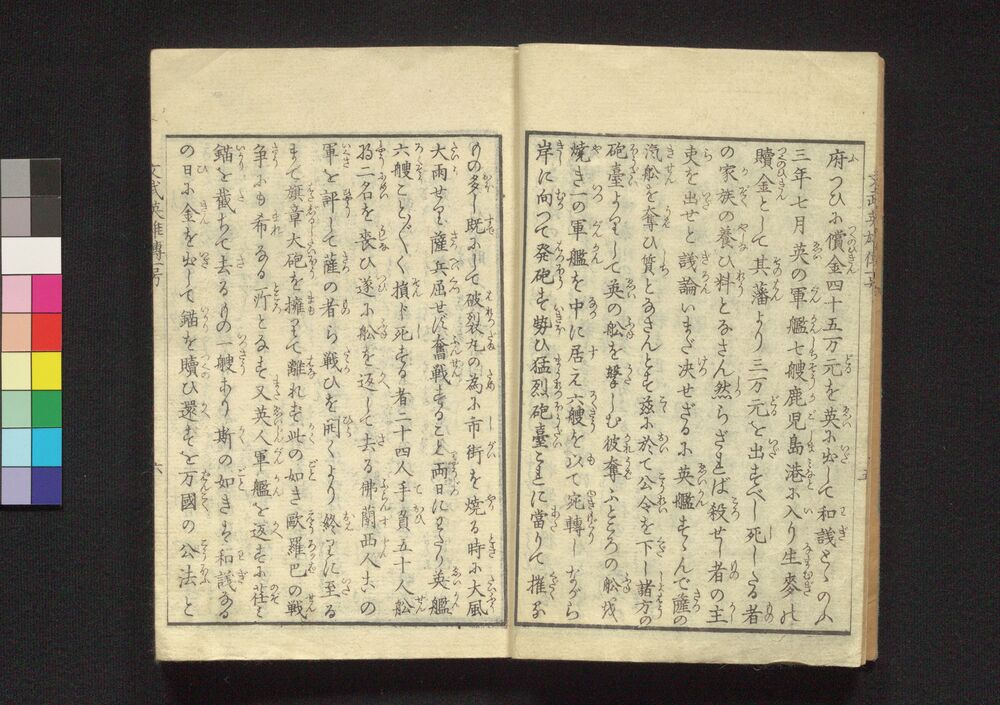 府つひに償金四十五万元を英に出して和議とゝのふ
三年七月英の軍艦七艘鹿児島港に入り生麥の
贖金として其藩より三万元を出すべし死したる者
の家族の養ひ料となさん然らざれば殺せし者の主
吏を出せと議論いまだ决せざるに英艦すゝんで薩の
滊舩を奪ひ質となさんとす茲に於て公令を下し諸方の
砲臺よりして英の舩を撃しむ彼奪ふところの舩を
焼き一の軍艦を中に居え六艘を以て宛轉しながら
岸に向つて発砲す勢ひ猛烈砲臺これに當りて摧る
もの多し既にして破裂丸の為に市街を焼る時に大風
大雨せり薩兵屈せず奮戦すること両日にわたり英艦
六艘こと〴〵く損じ死する者二十四人手負五十人舩
将二名を喪ひ遂に舩を返して去る佛蘭西人左いの
軍を評して薩の者ら戦ひを開くより終りに至る
まで旗章大砲を擁りて離れず此の如き歐羅巴の戦
争にも希なる所となす又英人軍艦を返すに莅と
錨を截ちて去るもの一艘あり斯の如きは和議なる
の日に金を出して錨を贖ひ還すを万國の公法と
文武英雄傳一号
五
六